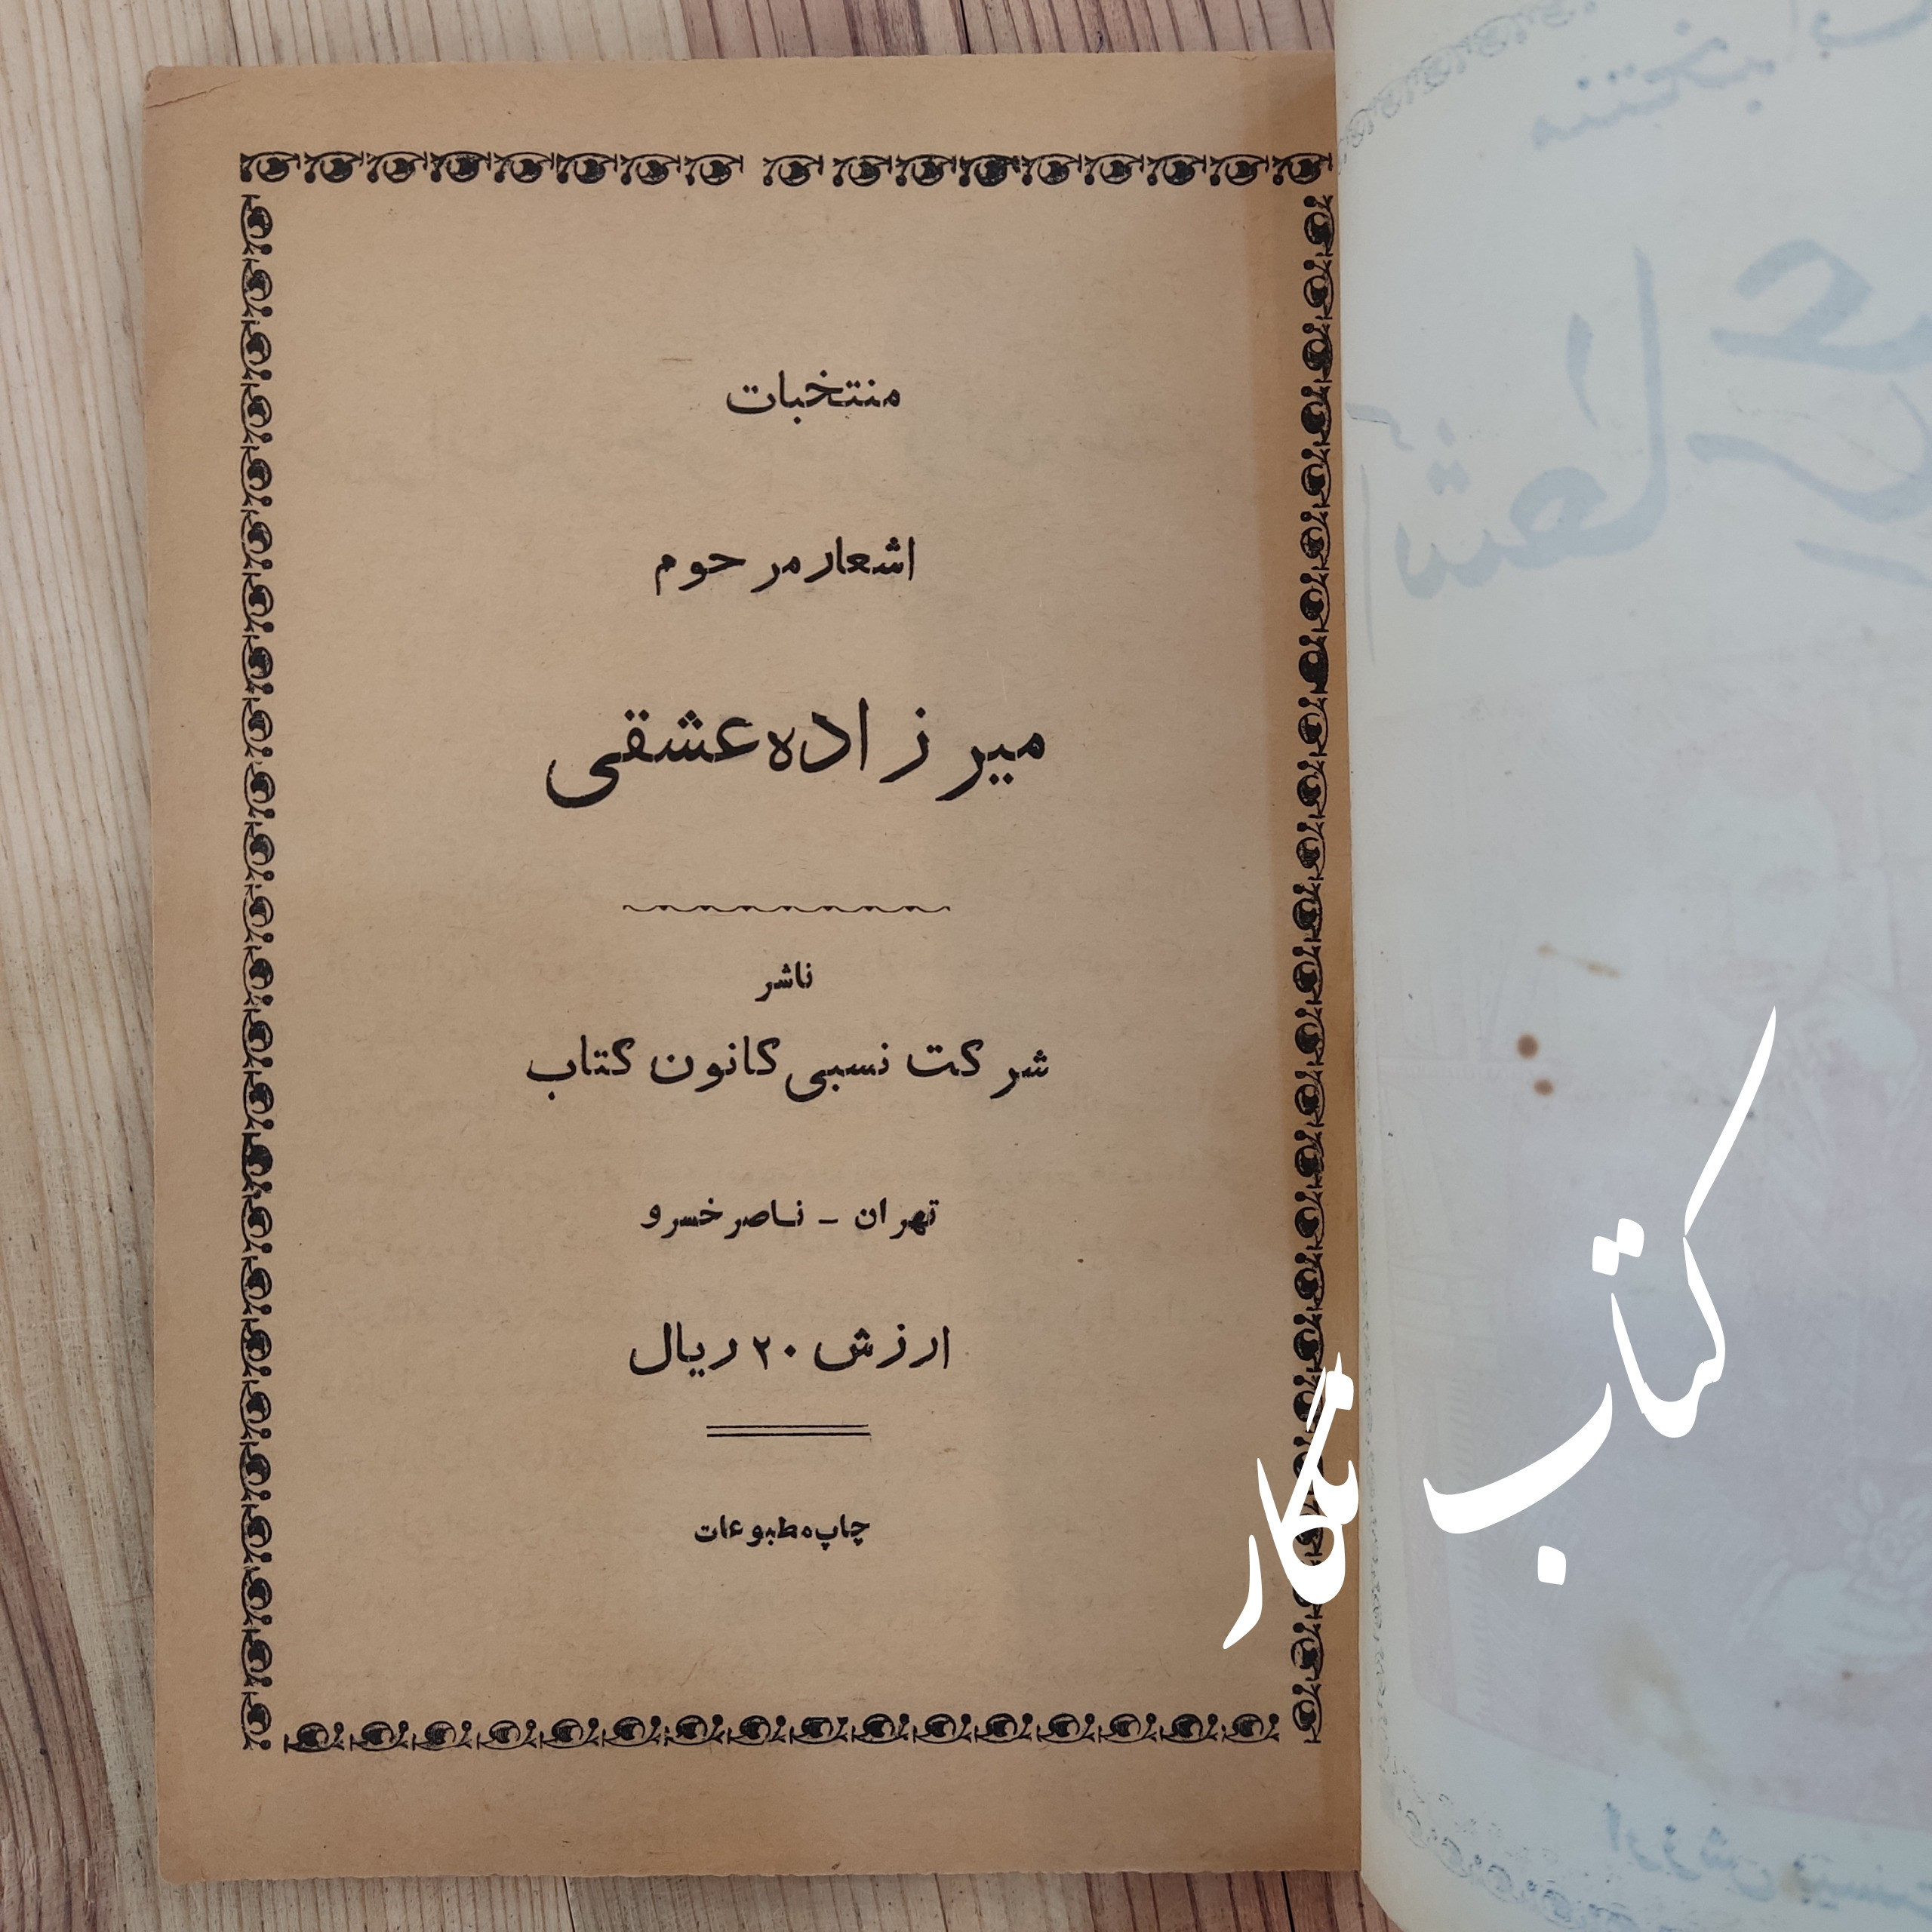 منتخبات
اشعار مرحوم
میرزاده عشقی
ناشر
شرکت نسبی کانون کتاب
تهران - ناصر خسرو
ارزش ۲۰ ریال
چاپ مطبوعات
کتاب
نگار